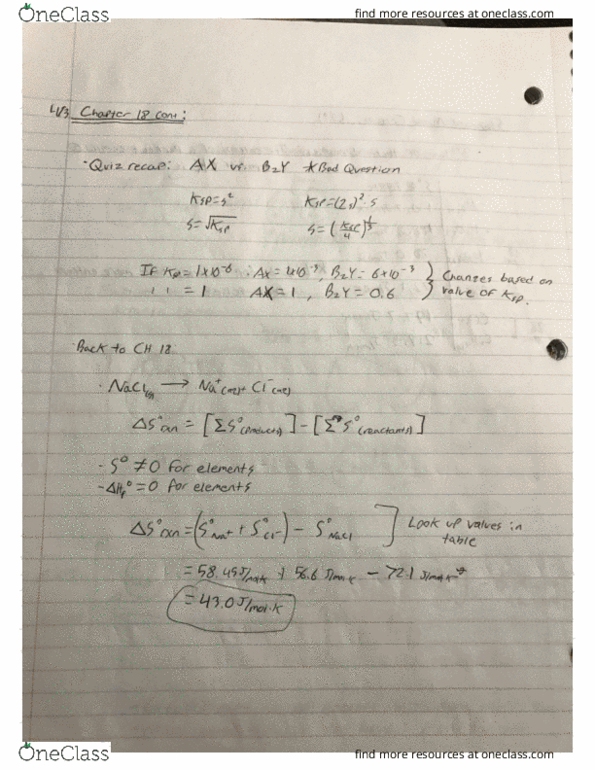 OneClass
find more resources at oneclass.com
4/3 Chapter 18 cont:
· Quiz recap: AX vs B₂Y *Bad Question
Ksp=s² Ksp=(2s)²·s
s=√Ksp s=(Ksp/4)^⅓
If Ksp=1x10⁻⁶ : AX=1x10⁻³, B₂Y=6x10⁻³ } Changes based on
" " =1 AX=1, B₂Y=0.6 } value of Ksp.
· Back to CH 18
· NaCl(s) → Na⁺(aq) + Cl⁻(aq)
ΔS°rxn = [ΣS°(products)] - [ΣS°(reactants)]
- S° ≠ 0 for elements
- ΔHf° = 0 for elements
ΔS°rxn = (S°Na⁺ + S°Cl⁻) - S°NaCl ] Look up values in
table
= 58.45 J/mol·K + 56.6 J/mol·K - 72.1 J/mol·K
= 43.0 J/mol·K
OneClass
find more resources at oneclass.com